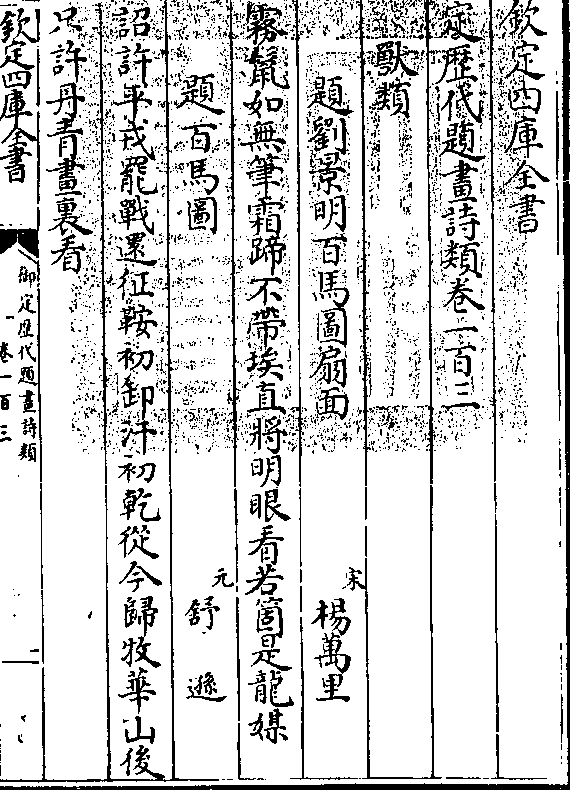 欽定四庫全書
定歴代題畫詩類卷一百三
獸類
題劉景明百馬圖扇面
宋 楊萬里
霧鬛如無筆霜蹄不帶埃直將明眼看若箇是龍媒
題百馬圖
元 舒遜
詔許平戎罷戰還征鞍初卸汗初乾從今歸牧華山後
只許丹青畫裏看
欽定四庫全書
御定歴代題畫詩類
卷一百三
一